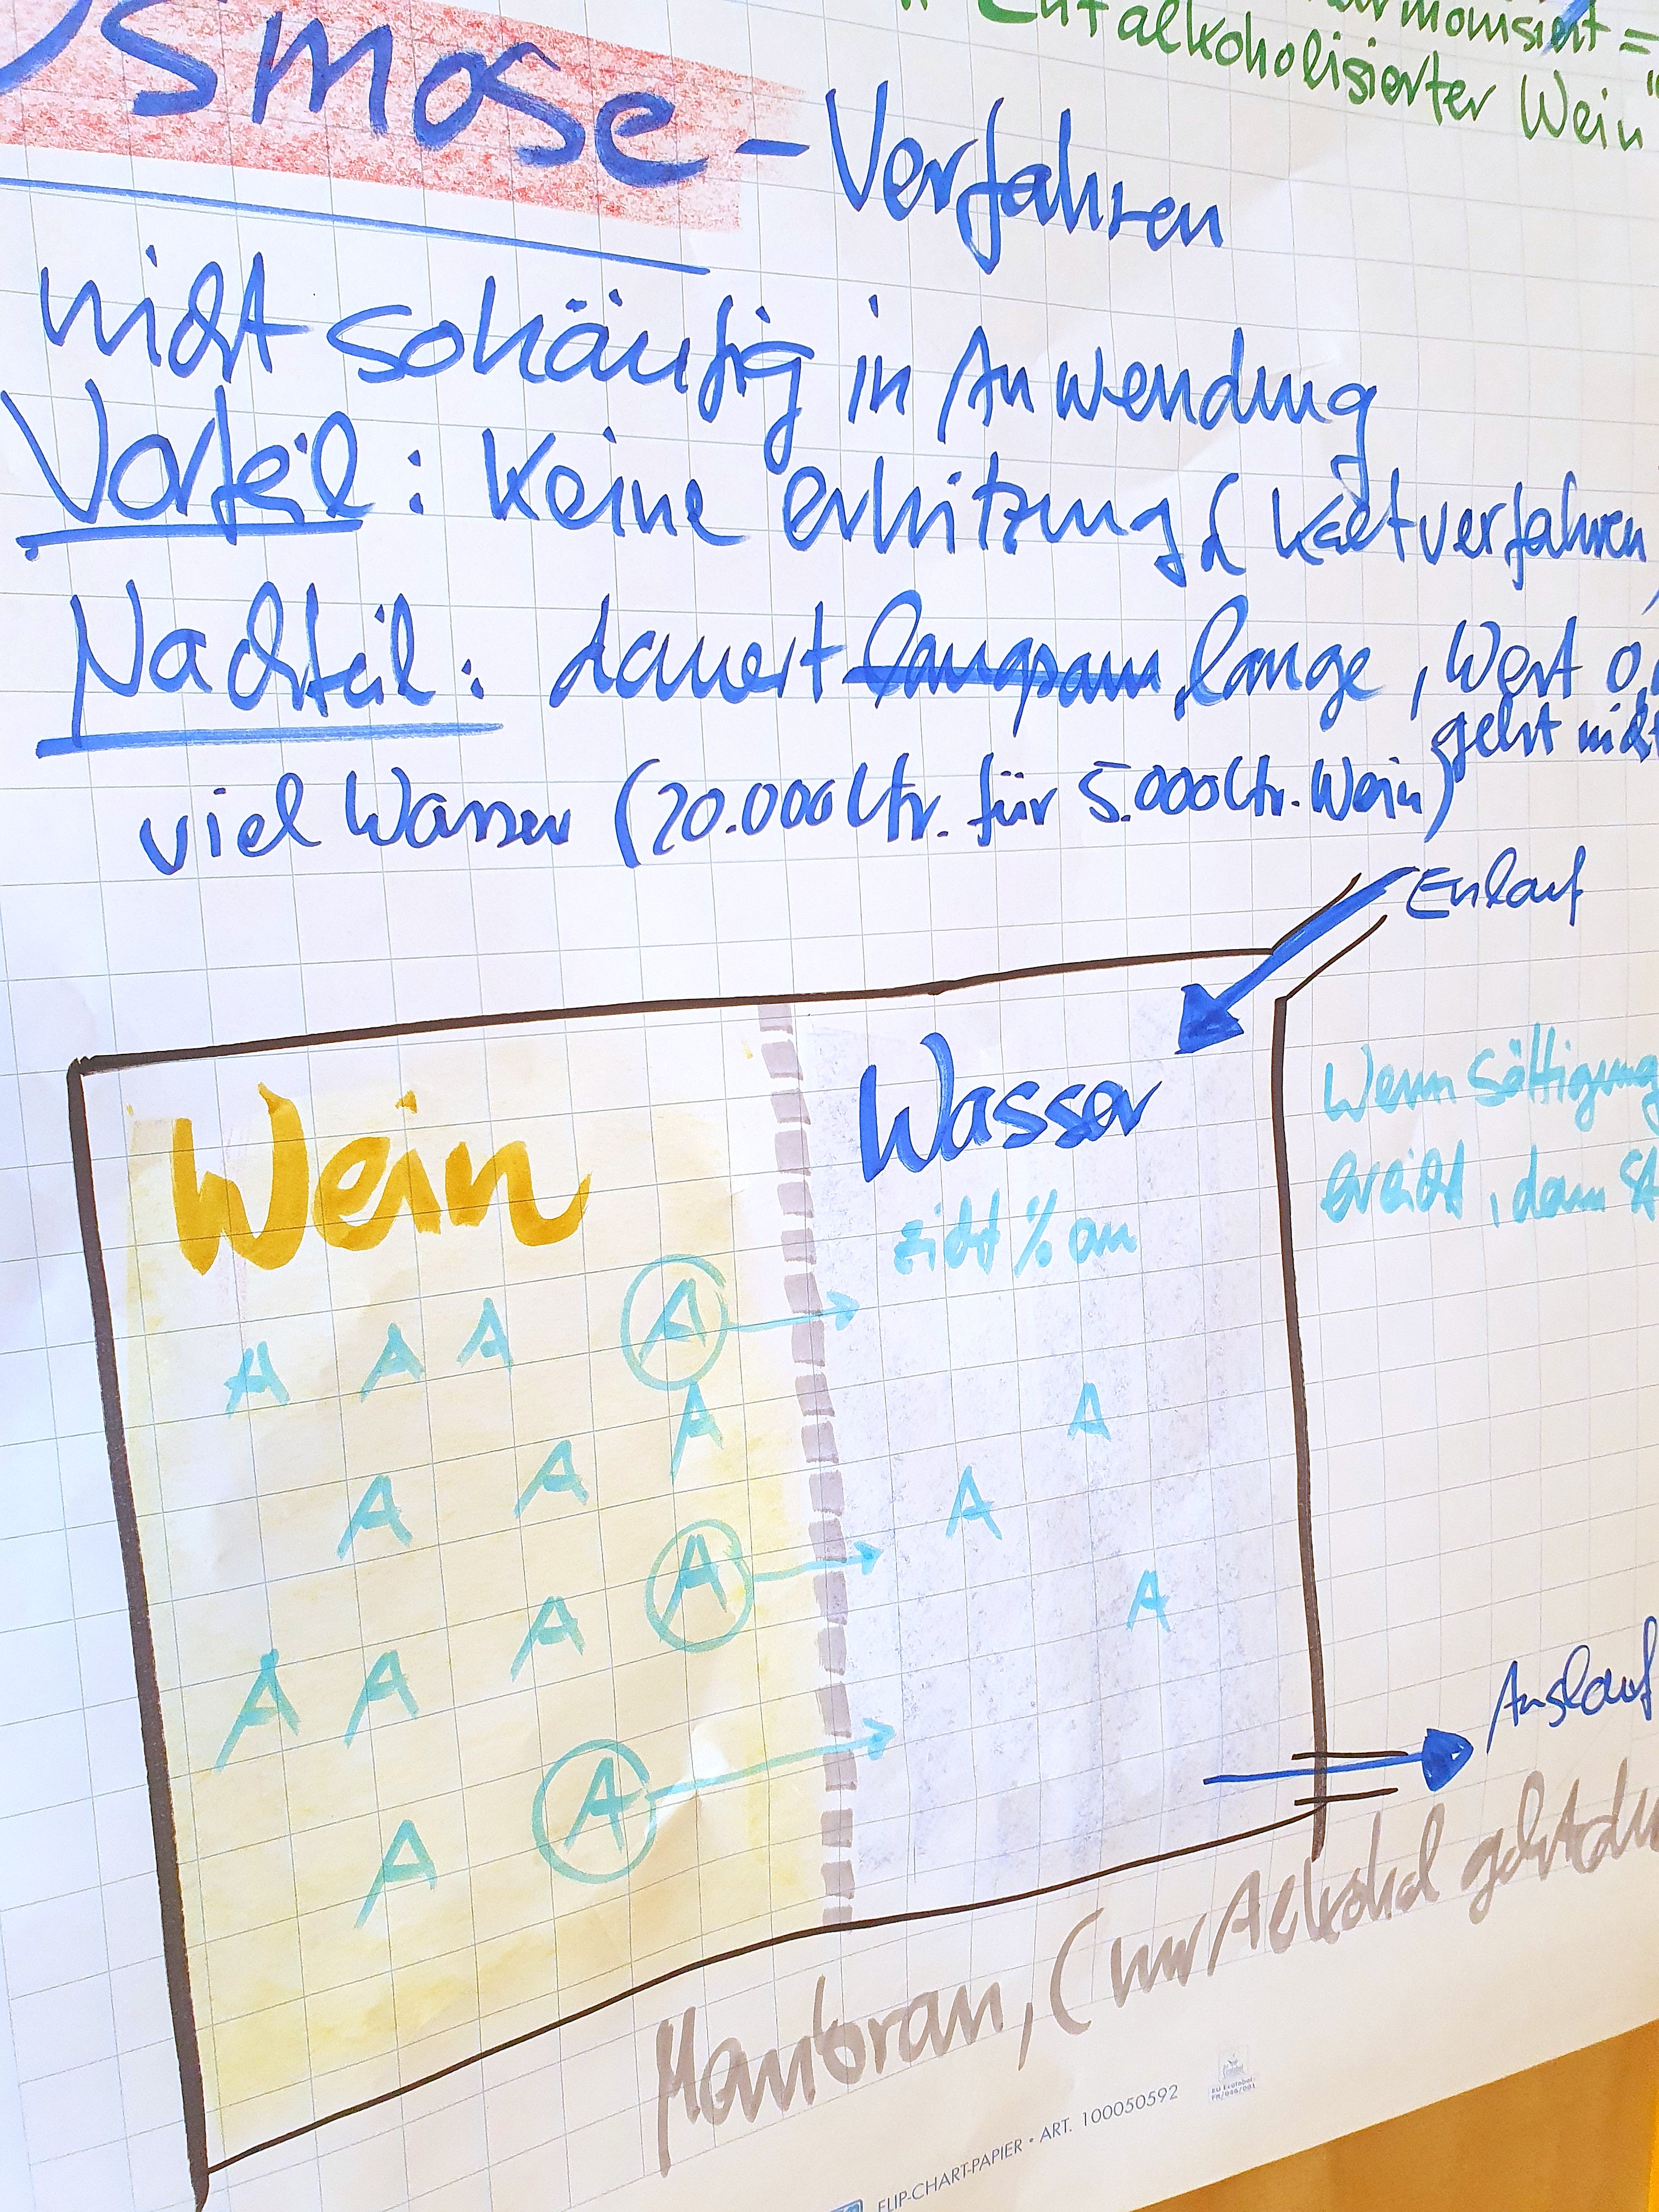 armonisiert =
"Entalkoholisierter Wein"
Osmose-Verfahren
nicht so häufig in Anwendung
Vorteil: Keine erhitzung & Kaltverfahren
Nachteil: dauert langsam lange, Wert 0,
geht nicht
viel Wasser (20.000 Ltr. für 5.000 Ltr. Wein)
Einlauf
Wein
Wasser
zieht % an
Wenn Sättigung
erreicht, dann St
A A A A
A
A A
A
A
A
A
A A
A
A A
Auslauf
Membran, (nur Alkohol geht du
FLIP-CHART-PAPIER • ART. 100050592
EU Ecolabel